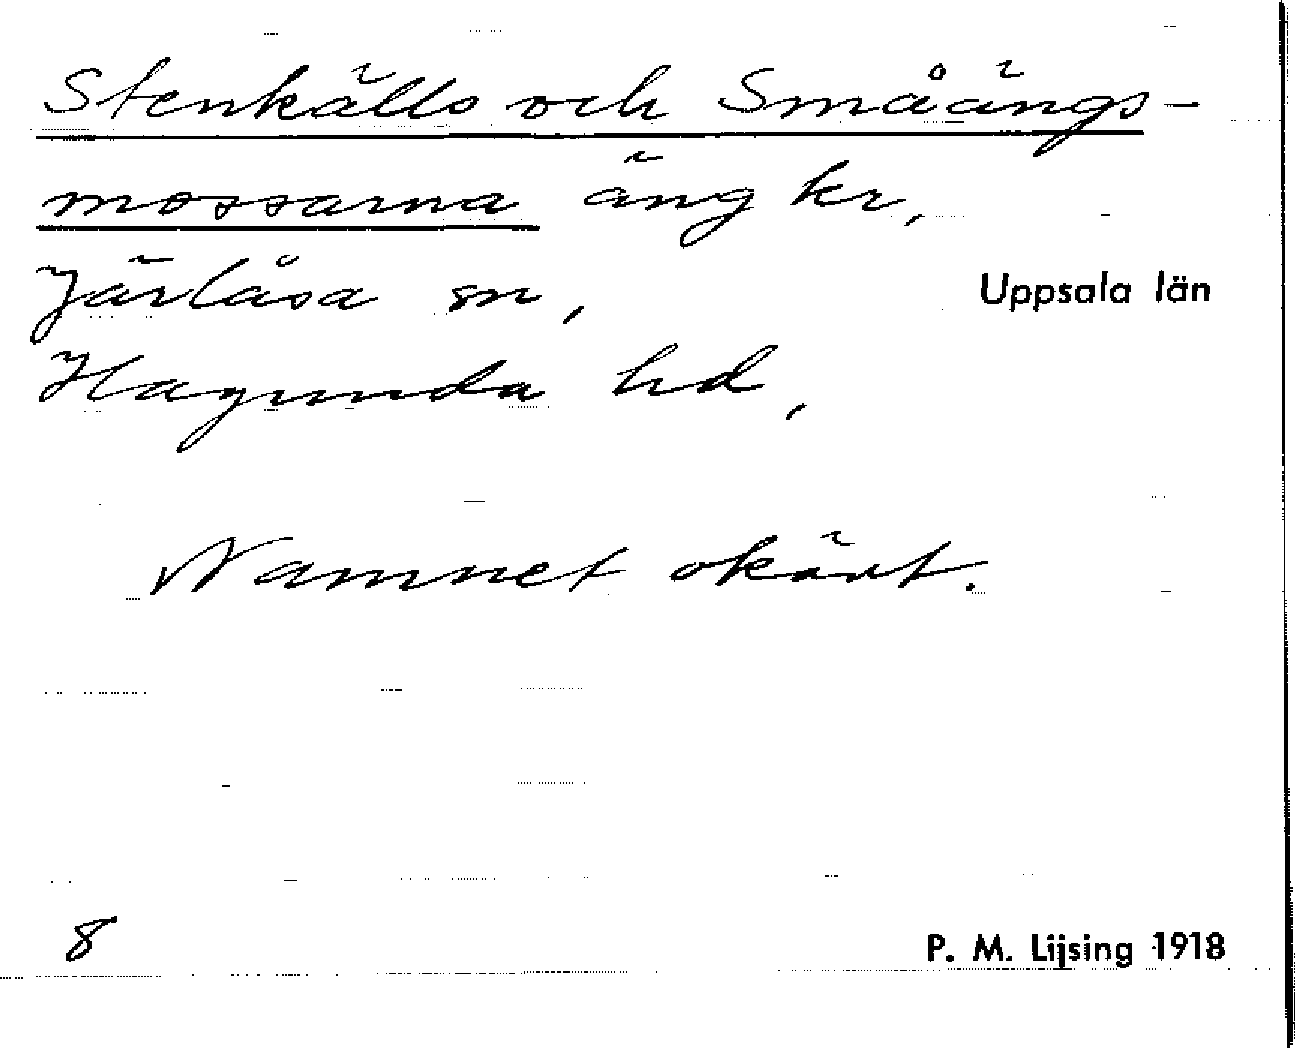 Stenkälls och Småängs-
mossarna äng kr,
Järlåsa sn,
Uppsala län
Hagunda hd,
Namnet okänt.
8
P. M. Lijsing 1918